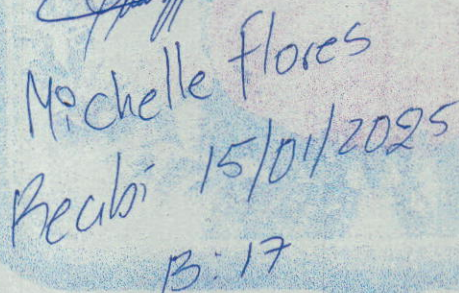 Michelle Flores
Recibí 15/01/2025
13:17